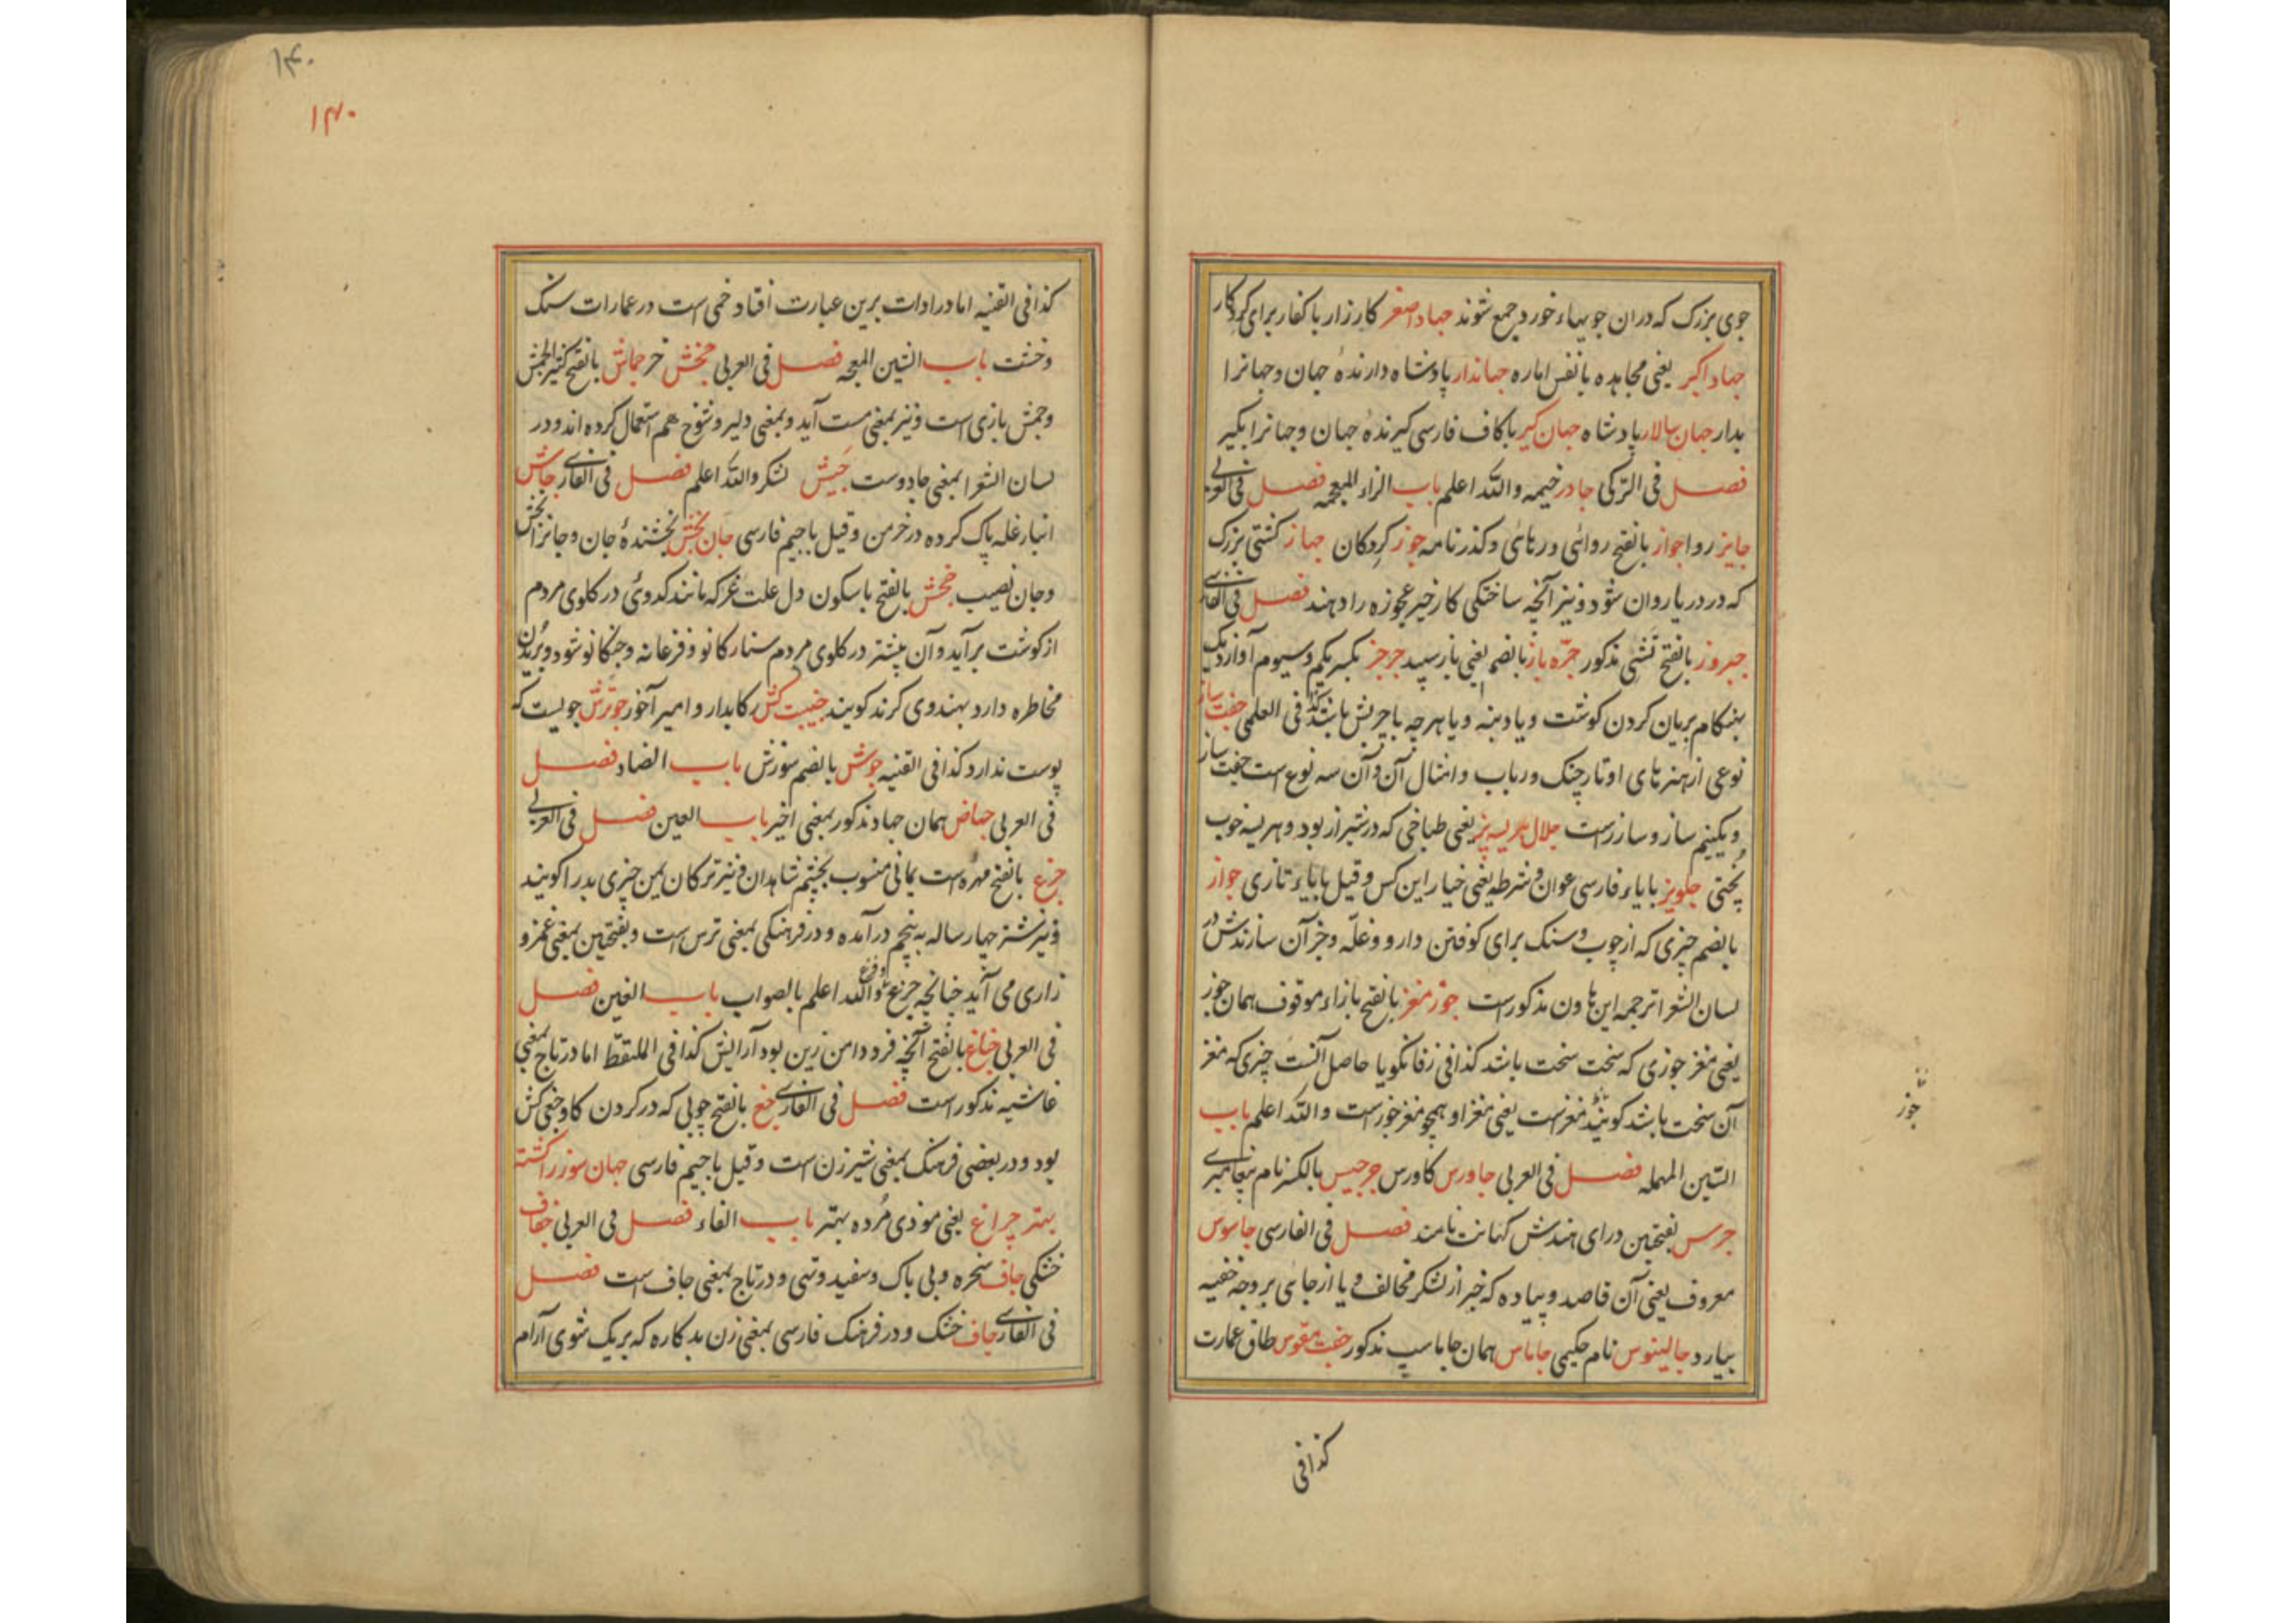 جوی بزرک که دران جویهاء خورد جمع شوند جهاد اصغر کارزار با کفار برای کردکار
جهاد اکبر یعنی مجاهده با نفس اماره جهاندار پادشاه دارندهٔ جهان و جهانرا
بدار جهان سالار پادشاه جهان کیر با کاف فارسی کیرندهٔ جهان و جهانرا بکیر
فصل فی الترکی جادر خیمه والله اعلم باب الزاء المعجمه فصل فی العربی
جایز روا جواز بالفتح روائی ورهائی وکذرنامه جوز کردکان جهاز کشتی بزرک
که در دریا روان شود و نیز آنچه ساختکی کار خیر عجوزه را دهند فصل فی الفارسی
جبروز بالفتح مذکور جره باز بالضم یعنی باز سپید جزجز بکسر یکم وسیوم آواز دیک
بهنکام بریان کردن کوشت ویا دنبه ویا هرچه با چربش باشد کذا فی العلمی جفت ساز
نوعی از هنرهای اوتار چنک ورباب وامثال آن وآن سه نوع است جفت ساز
ویکنیم ساز وسازراست جلال هریسه پز یعنی طباخی که در شیراز بود وهریسه خوب
پختی جلویز با یاء فارسی عوان وشرطه یعنی خیار این کس وقیل با یاء تازی جواز
بالضم چیزی که از چوب وسنک برای کوفتن دارو وغله وجز آن سازندش در
لسان الشعرا ترجمه این هاون مذکورست جوز مغز بالفتح با زاء موقوف همان جوز
یعنی مغز جوزی که سخت سخت باشد کذا فی زفانکویا حاصل آنست چیزی که مغز
آن سخت باشد کویند مغزست یعنی مغز او همچو مغز جوزست والله اعلم باب
السین المهمله فصل فی العربی جاورس کاورس جرجیس بالکسر نام پیغامبری
جرس بفتحتین درای هندش کهانت نامند فصل فی الفارسی جاسوس
معروف یعنی آن قاصد وپیاده که خبر از لشکر مخالف ویا از جای بر وجه خفیه
بیارد جالینوس نام حکیمی جاماس همان جاماسپ مذکور جفت مقوس طاق عمارت
کذا فی
جوز
۱۴۰
۱۴۰
کذا فی القنیه اما در ادات برین عبارت افتاد خمی است در عمارات سنک
وخشت باب الشین المعجمه فصل فی العربی جحش خر جماش بالفتح کثیر الجمش
وجمش بازی است ونیز بمعنی مست آید وبمعنی دلیر وشوخ هم استعمال کرده اند ودر
لسان الشعرا بمعنی جادوست جیش لشکر والله اعلم فصل فی الفارسی جاش
انبار غله پاک کرده در خرمن وقیل با جیم فارسی جان بخش بخشندهٔ جان وجانرا بخش
وجان نصیب جخش بالفتح با سکون دل علت غر که مانند کدوی در کلوی مردم
از کوشت برآید وآن بیشتر در کلوی مردم ستارکانو وفرغانه وختکانو شود وبریدن
مخاطره دارد بهندوی کرند کویند جنیبت کش رکابدار وامیر آخور جوترش جویست که
پوست ندارد کذا فی القنیه جوش بالضم سوزش باب الضاد فصل
فی العربی جهاض همان جهاد مذکور بمعنی اخیر باب العین فصل فی العربی
جزع بالفتح مهره است یمانی منسوب بچشم شاهدان ونیز ترکان یمن چیزی بدرا کویند
ونیز شتر چهار ساله به پنجم درآمده ودر فرهنکی بمعنی ترس است وبفتحتین بمعنی غمز و
زاری می آید چنانچه جزع وفزع والله اعلم بالصواب باب الغین فصل
فی العربی جناغ بالفتح آنچه فرود دامن زین بود آرایش کذا فی الملتقط اما در تاج بمعنی
غاشیه مذکور است فصل فی الفارسی جغ بالفتح چوبی که در کردن کاو جفتی کش
بود ودر بعضی فرهنک بمعنی شیرزن است وقیل با جیم فارسی جهان سوز را کشته
بهتر چراغ یعنی موذی مرده بهتر باب الفاء فصل فی العربی جفاف
خشکی جاف سخره وبی باک وسفید وتهی ودر تاج بمعنی جاف است فصل
فی الفارسی جاف خشک ودر فرهنک فارسی بمعنی زن بدکاره که بریک شوی آرام